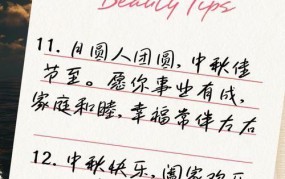 Beauty Tips
11. 月圆人团圆，中秋佳
节至。愿你事业有成，
家庭和睦，幸福常伴左右
12. 中秋快乐，阖家欢乐